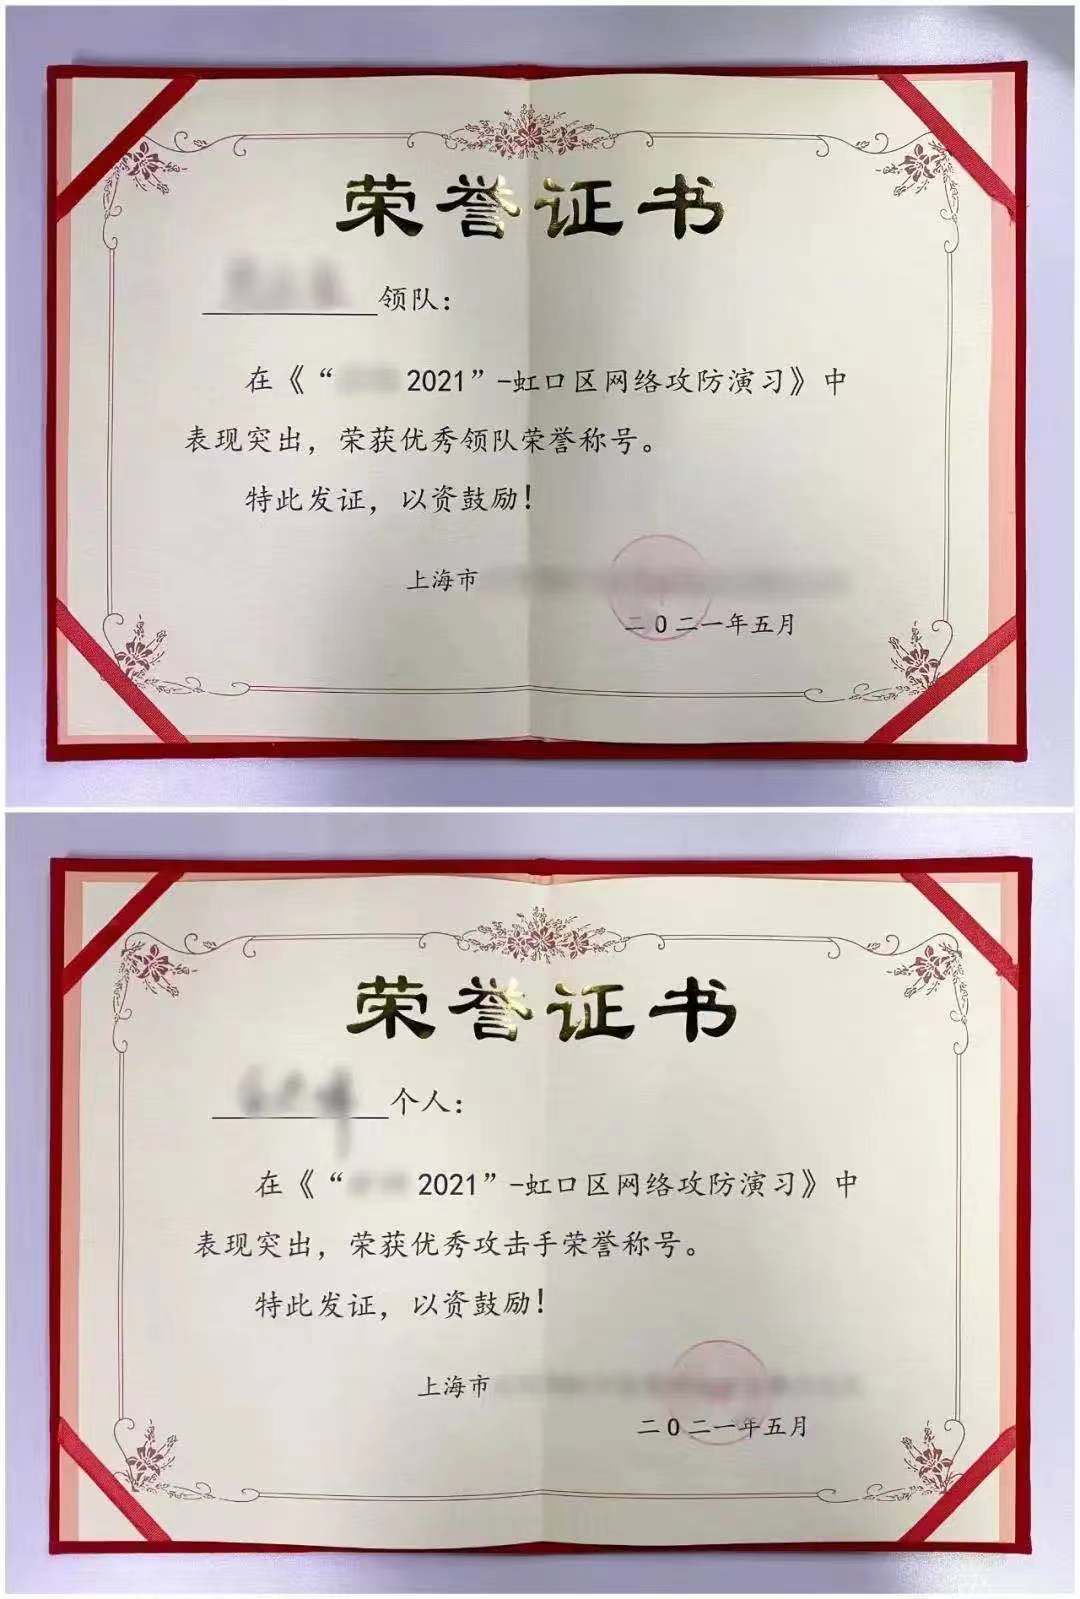 荣誉证书
领队：
在《“ 2021”-虹口区网络攻防演习》中
表现突出，荣获优秀领队荣誉称号。
特此发证，以资鼓励！
上海市
二0二一年五月
荣誉证书
个人：
在《“ 2021”-虹口区网络攻防演习》中
表现突出，荣获优秀攻击手荣誉称号。
特此发证，以资鼓励！
上海市
二0二一年五月